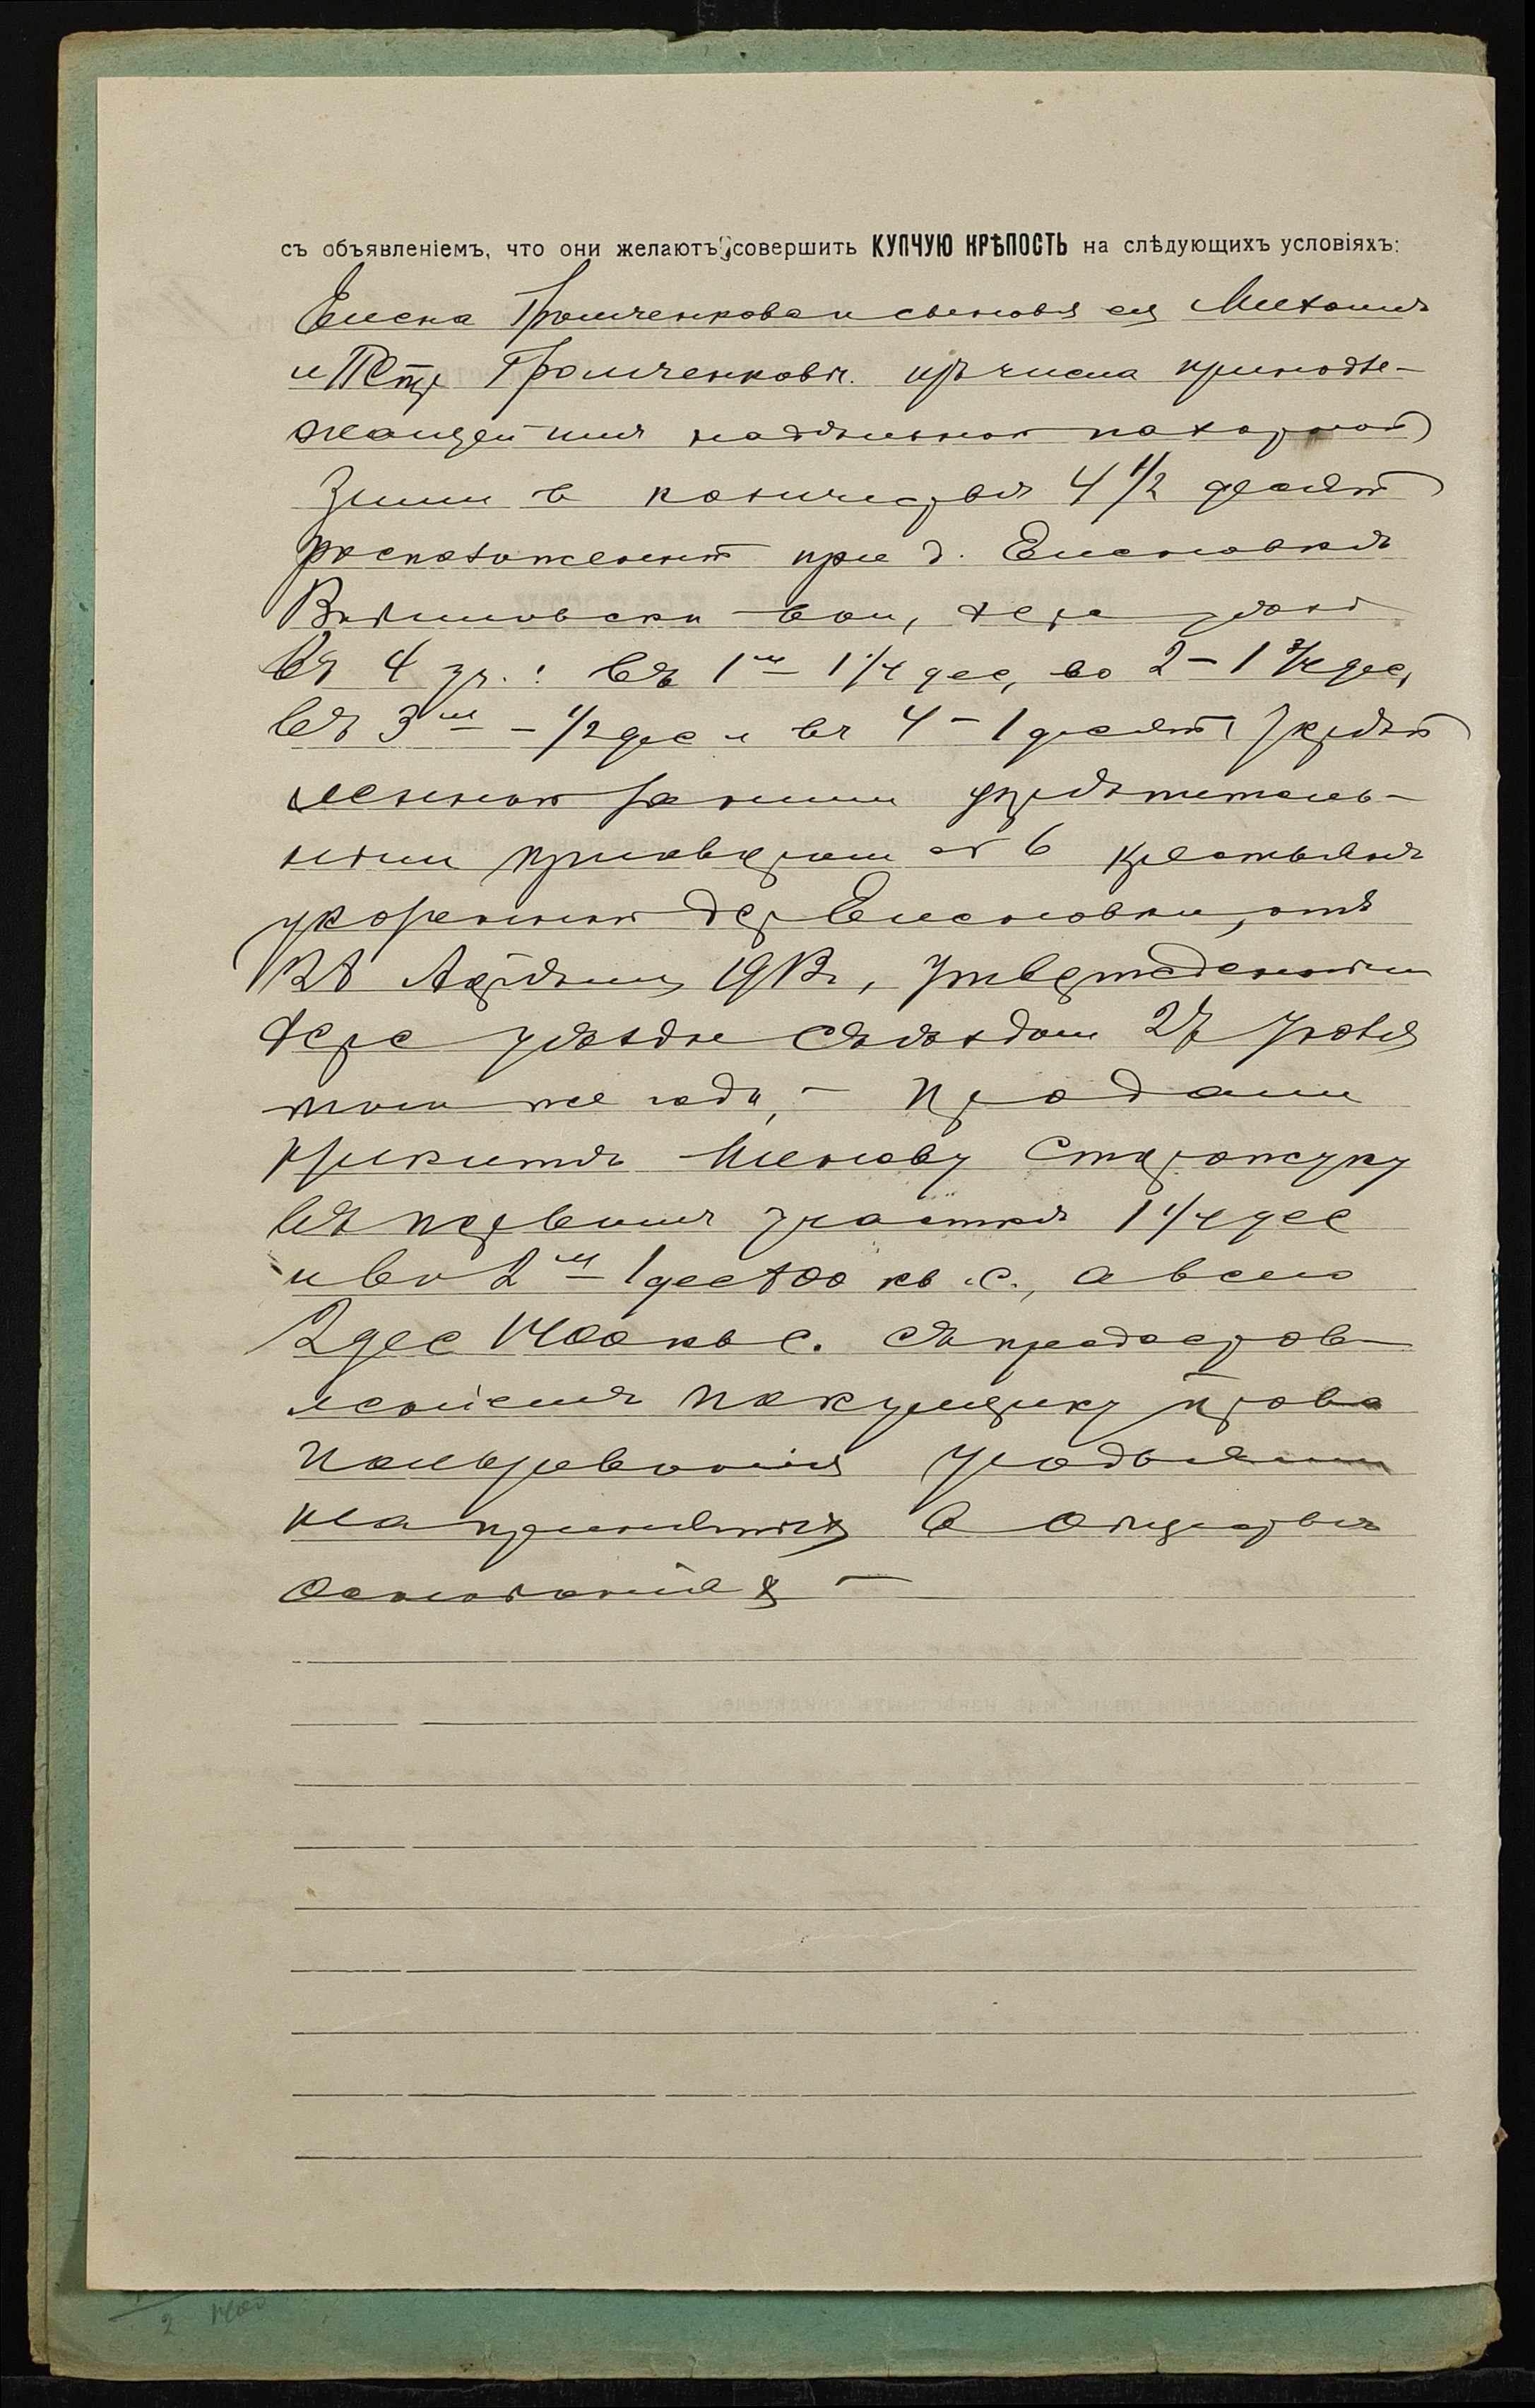 съ объявленіемъ, что они желаютъ совершить КУПЧУЮ КРѢПОСТЬ на слѣдующихъ условіяхъ:
Елена Громченкова и сыновья ея Михаилъ
и Петр Громченковы. изъ числа принадле-
жащей имъ надѣльной пахатной
земли в количествѣ 4 1/2 десят
расположенной при д. Еленовкѣ
вол, Херс уѣзда
въ 4 уч.: въ 1м – 1 1/4 дес, во 2 – 1 3/4 дес,
въ 3м – 1/2 дес и въ 4 – 1 десят, укрѣп
ленной за ними укрѣпитель-
ным приговором об б крестьянъ
дер Еленовки, отъ
Апрѣля 191 г, утвержденным
Херс уѣздн съѣздом 27 Іюля
того же года, – продали
Никитѣ Старожуку
въ первомъ участкѣ 1 1/4 дес
и во 2м – 1 дес 800 кв. с., а всего
2 дес 1400 кв с. съ предостав
леніемъ покупщику права
пользованія угодьями
на принятых в обществѣ
основаніях –
2 1400